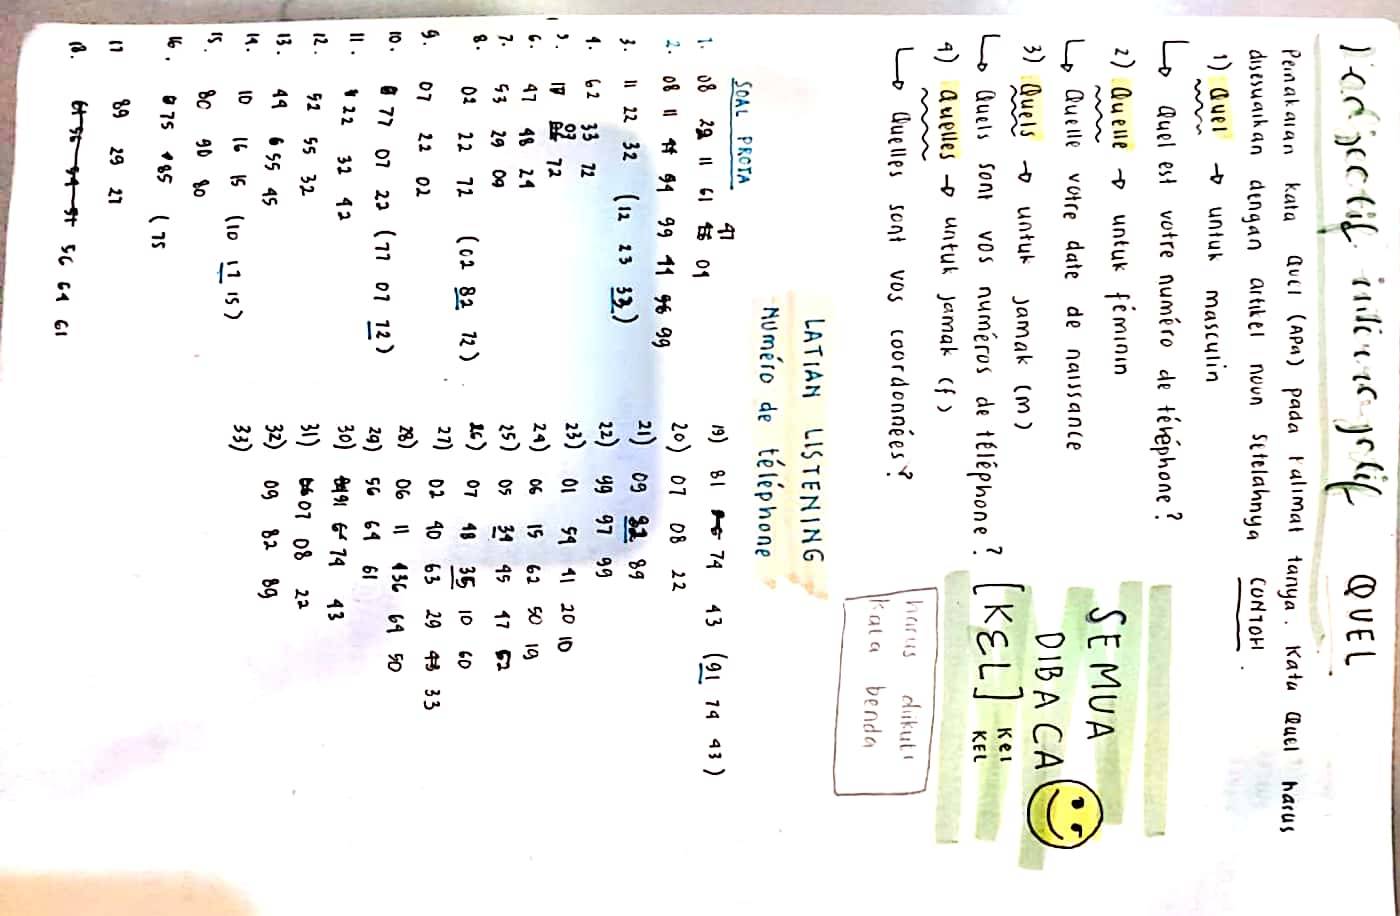 l'adjectif interrogatif QUEL
Pemakaian kata Quel (APA) pada kalimat tanya. Kata Quel harus
disesuaikan dengan artikel noun setelahnya CONTOH.
1) Quel → untuk masculin
↳ Quel est votre numéro de téléphone?
2) Quelle → untuk féminin
↳ Quelle votre date de naissance
3) Quels → untuk jamak (m)
↳ Quels sont vos numéros de téléphone?
4) Quelles → untuk jamak (f)
↳ Quelles sont vos coordonnées?
SEMUA
DIBACA
[KEL] Kel
KEL
harus diikuti
kata benda
LATIAN LISTENING
Numéro de téléphone
SOAL PROTA
1. 08 29 11 61 47 09
2. 08 11 94 99 99
3. 11 22 32 (12 23 33)
4. 62 33 72
5. 07 72
6. 47 48 24
7. 53 29 09
8. 02 22 72 (02 82 72)
9. 07 22 02
10. 77 07 22 (77 07 12)
11. 22 32 42
12. 52 55 32
13. 44 655 45
14. 10 16 15 (10 17 15)
15. 80 90 80
16. 75 85 (75
17 89 29 27
18. 56 64 61
19) 81 74 43 (91 74 43)
20) 07 08 22
21) 09 82 89
22) 99 97 99
23) 01 54 41 20 10
24) 06 15 62 50 19
25) 05 34 45 47 52
26) 07 48 35 10 60
27) 02 40 63 29 33
28) 06 11 36 64 50
29) 56 64 61
30) 91 74 43
31) 07 08 22
32) 09 82 89
33)